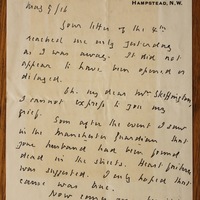 HAMPSTEAD, N.W.
May 9/16
Your letter of the 4th
reached me only yesterday
as I was away. It did not
appear to have been opened or
delayed.
Oh my dear Mrs Skeffington
I cannot express to you my
grief. Soon after the event I saw
in the Manchester Guardian that
your husband had been found
dead in the streets. Heart failure
was suggested. I only hoped that
cause was true.
Now comes